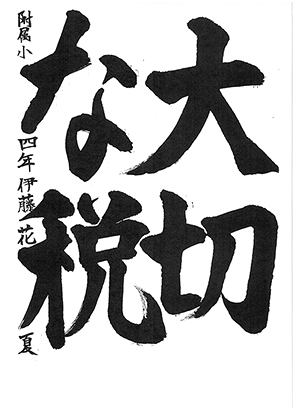 大切
な税
附属小 四年 伊藤花夏